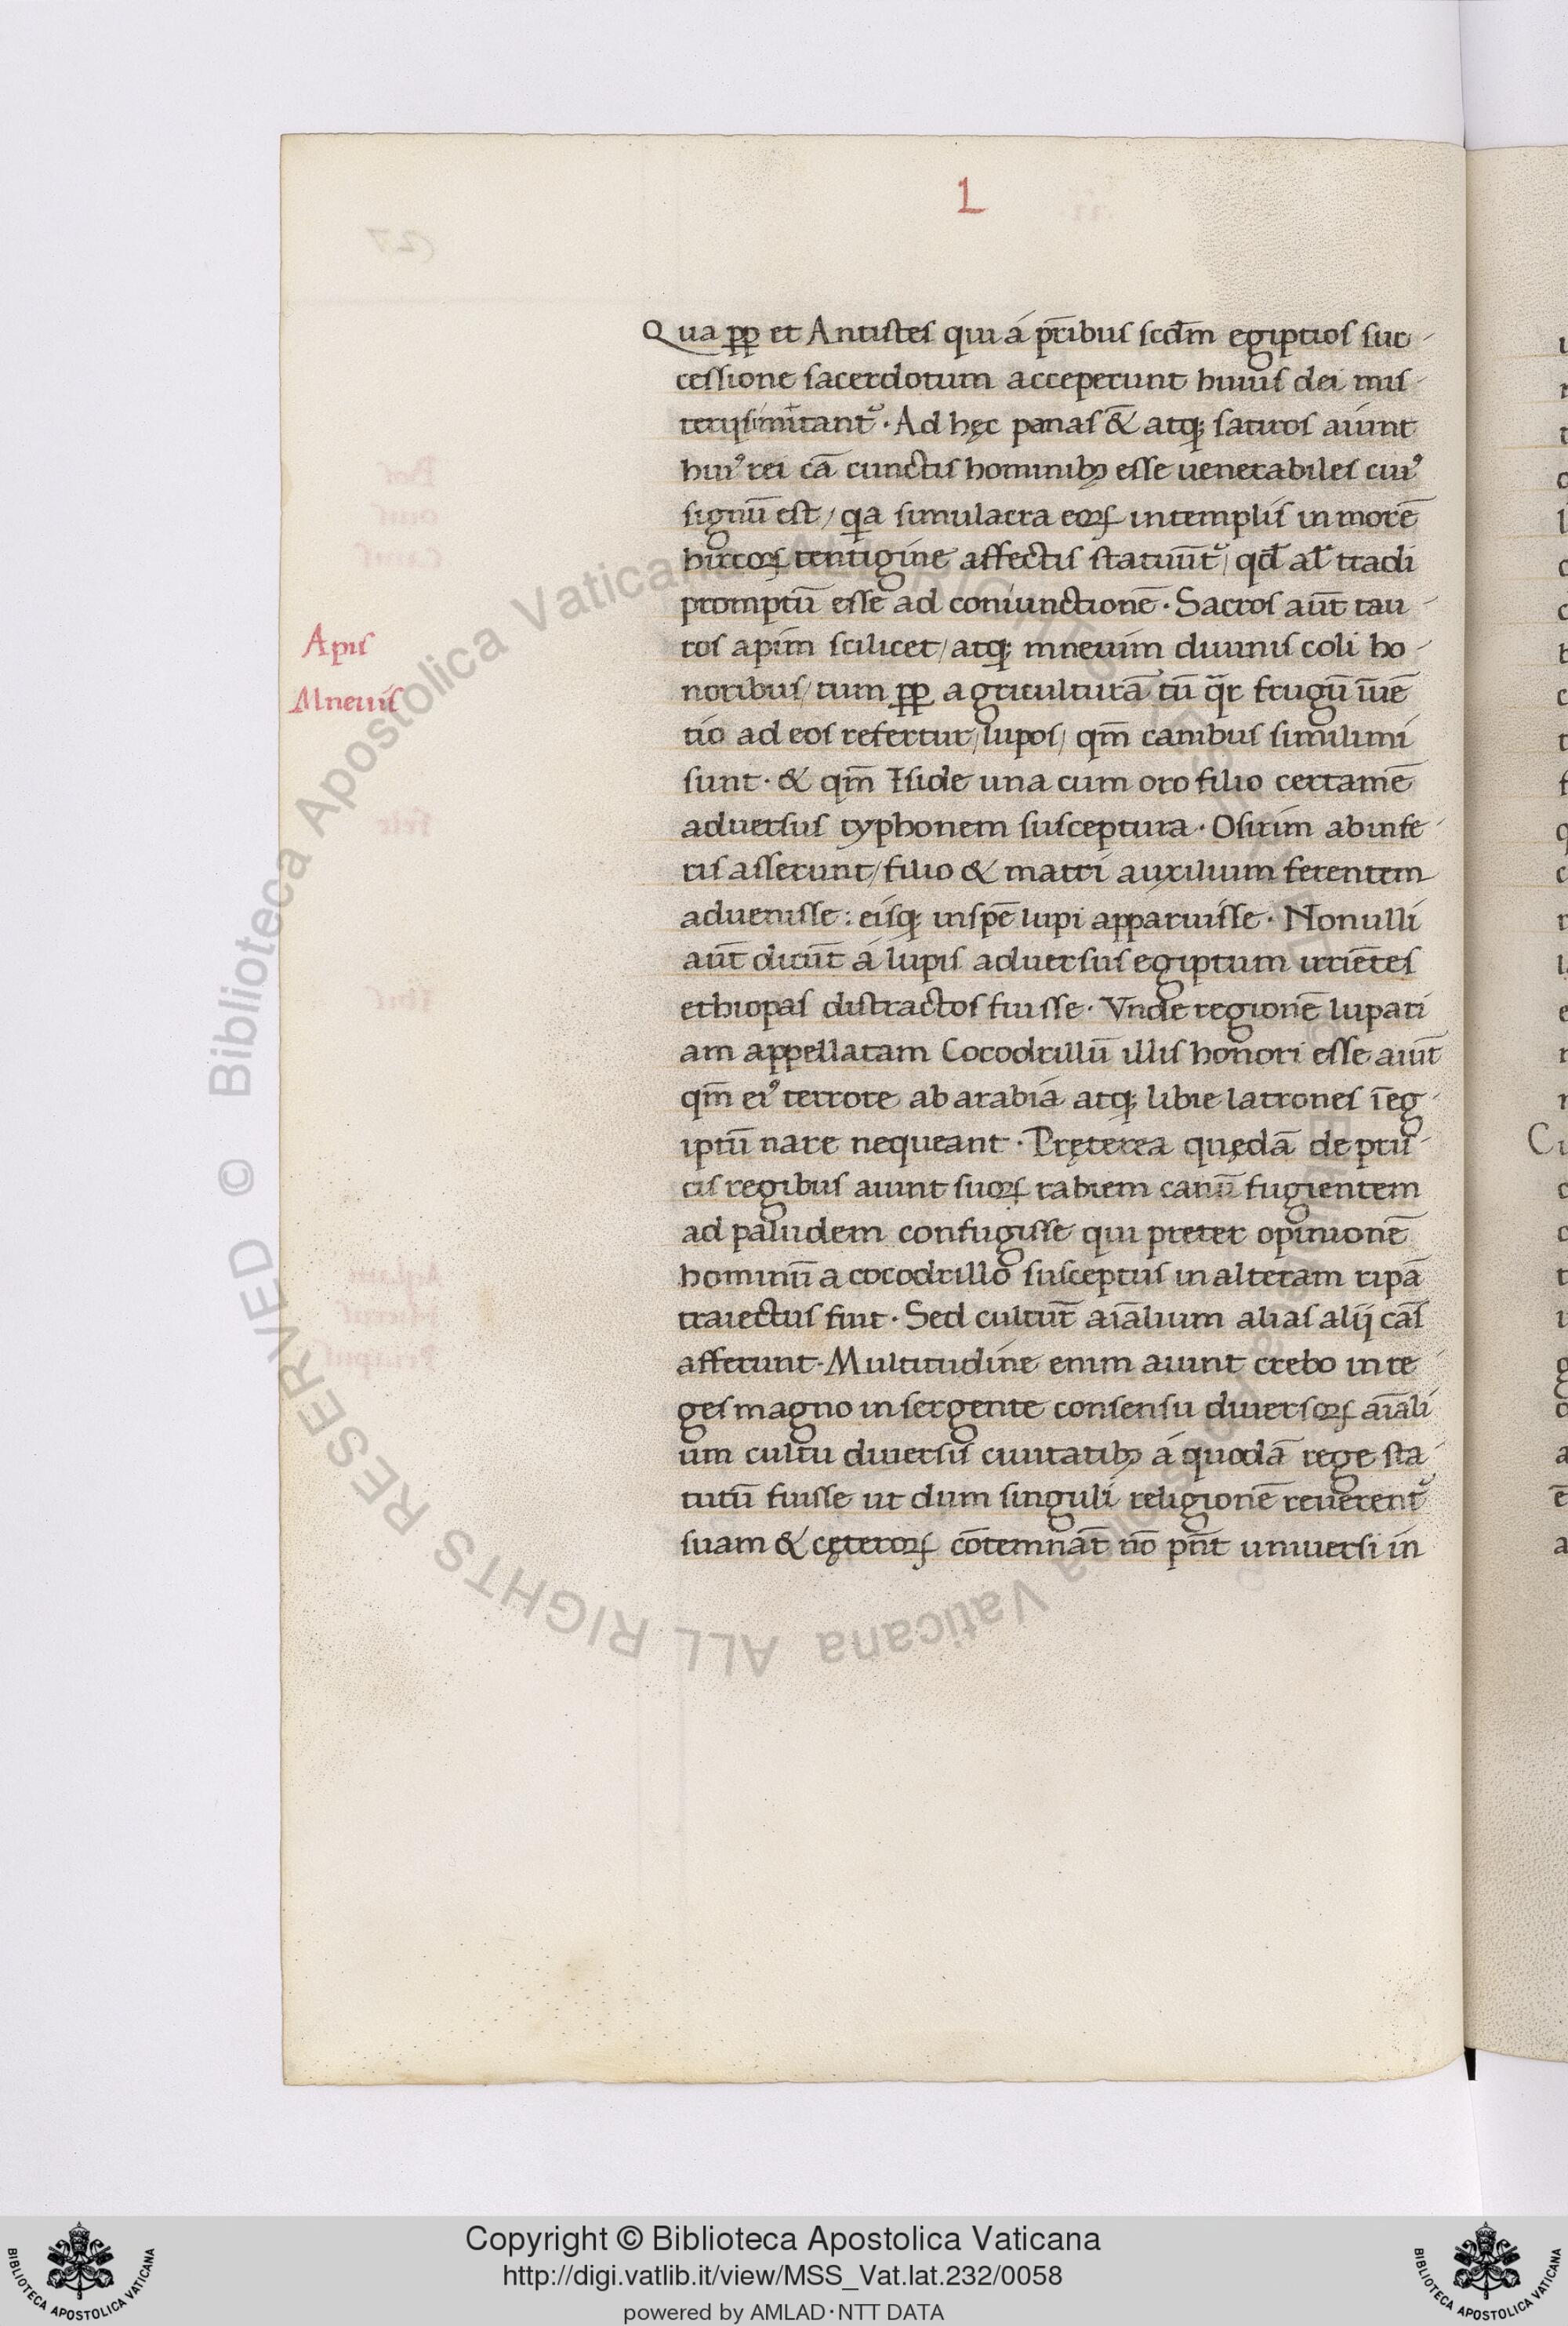 1
Qua pp et Antistes qui á pr̄ibus scd̄m egiptios suc-
cessione sacerdotum acceperunt huius dei mis-
terijs init̄antᷣ. Ad hęc panas & atq; satiros aiunt
hui⁹ rei cā cunctis hominibꝫ esse uenerabiles cui⁹
signū est/ qa simulacra eoꝝ in templis in morē
hircoꝝ tentigine affectis statuūtᷣ/ qđ al̄ tradi
promptū esse ad coniunctionē. Sacros aūt tau-
ros apim scilicet/ atq; mneuim diuinis coli ho-
noribus/ tum pp agriculturā tū q̄r frugū īuē
tio ad eos refertur/ lupos/ qm̄ canibus similimi
sunt. & qm̄ Iside una cum oro filio certamē
aduersus typhonem susceptura. Osirim ab infe-
ris asserunt/ filio & matri auxilium ferentem
aduenisse: eisq; in spē lupi apparuisse. Nonulli
aūt dicūt á lupis aduersus egiptum irriētes
ethiopas distractos fuisse. Vnde regionē lupati
am appellatam Cocodrillū illis honori esse aiūt
qm̄ ei⁹ terrore ab arabia atq; libie latrones ī eg-
iptū nare nequeant. Pręterea quędā de pris-
cis regibus aiunt suoꝝ rabiem canū fugientem
ad paludem confugisse qui preter opinionē
hominū a cocodrillo susceptus in alteram ripā
traiectus fuit. Sed cultūt aīalium alias alij cās
afferunt. Multitudine enim aiunt crebo in re-
ges magno in sergente consensu diuersoꝝ aīali
um cultu diuersis ciuitatibꝫ á quodā rege sta-
tutū fuisse ut dum singuli religionē reuerentᷣ
suam & cęteroꝝ cōtemnāt nō pn̄t uniuersi in
Apis
Mneuis
Copyright © Biblioteca Apostolica Vaticana
http://digi.vatlib.it/view/MSS_Vat.lat.232/0058
powered by AMLAD·NTT DATA
BIBLIOTECA APOSTOLICA VATICANA
BIBLIOTECA APOSTOLICA VATICANA
© Biblioteca Apostolica Vaticana ALL RIGHTS RESERVED